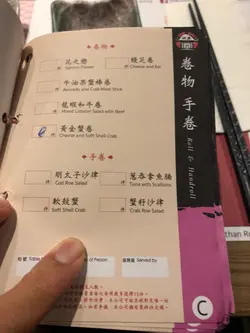 卷物
花之戀
Salmon Flower
鰻足卷
Cheese and Eel
牛油果蟹棒卷
Avocado and Crab Meat Stick
龍蝦和牛卷
Mixed Lobster Salad with Beef
黃金蟹卷
Cheese and Soft Shell Crab
手卷
明太子沙律
Cod Roe Salad
蔥吞拿魚腩
Tuna with Scallions
軟殼蟹
Soft Shell Crab
蟹籽沙律
Crab Roe Salad
卷物 手卷
Roll & Handroll
枱號 Table
of Person
Served by
C